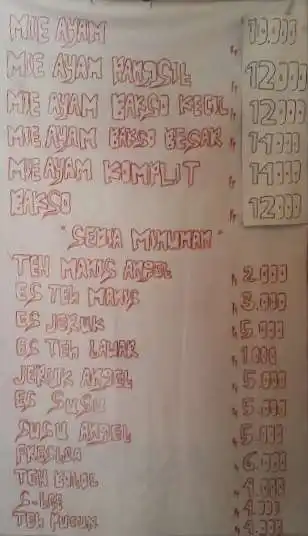 MIE AYAM Rp 10.000
MIE AYAM PANGSIT Rp 12.000
MIE AYAM BAKSO KECIL Rp 12.000
MIE AYAM BAKSO BESAR Rp 14.000
MIE AYAM KOMPLIT Rp 14.000
BAKSO Rp 12.000
"SEDIA MINUMAN"
TEH MANIS ANGET Rp 2.000
ES TEH MANIS Rp 3.000
ES JERUK Rp 5.000
ES TEH TAWAR Rp 1.000
JERUK ANGET Rp 5.000
ES SUSU Rp 5.000
SUSU ANGET Rp 5.000
FRESTEA Rp 6.000
TEH BOTOL Rp 4.000
S-TEE Rp 4.000
TEH PUCUK Rp 4.000